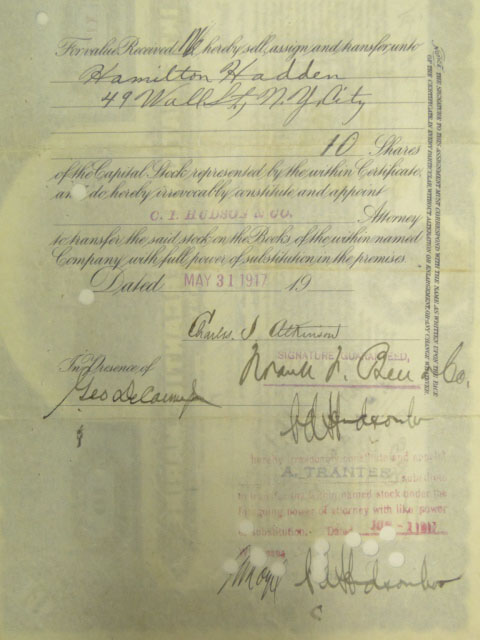 For value Received We hereby sell, assign and transfer unto
Hamilton Hadden
49 Wall St, N.Y. City
10 Shares
of the Capital Stock represented by the within Certificate,
and do hereby irrevocably constitute and appoint
C. I. HUDSON & CO. Attorney
to transfer the said stock on the Books of the within named
Company with full power of substitution in the premises.
Dated MAY 31 1917 19
Charles J Atkinson
In Presence of
SIGNATURE GUARANTEED,
& Co.
Geo
hereby irrevocably constitute and appoint
A. TRANTER
to transfer the within named stock under the
foregoing power of attorney with like power
of substitution. Dated JUN - 1 1917
NOTICE. THE SIGNATURE TO THIS ASSIGNMENT MUST CORRESPOND WITH THE NAME AS WRITTEN UPON THE FACE
OF THE CERTIFICATE IN EVERY PARTICULAR WITHOUT ALTERATION OR ENLARGEMENT OR ANY CHANGE WHATEVER